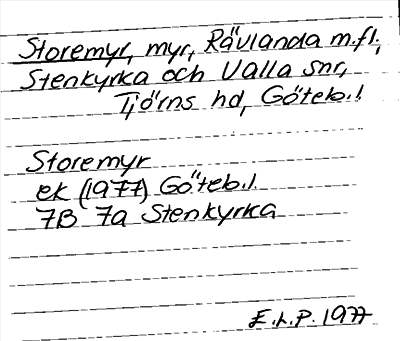 Storemyr, myr, Rävlanda m.fl.,
Stenkyrka och Valla snr,
Tjörns hd, Göteb.l.
Storemyr
ek (1977) Göteb.l.
7B 7a Stenkyrka
E.L.P. 1977